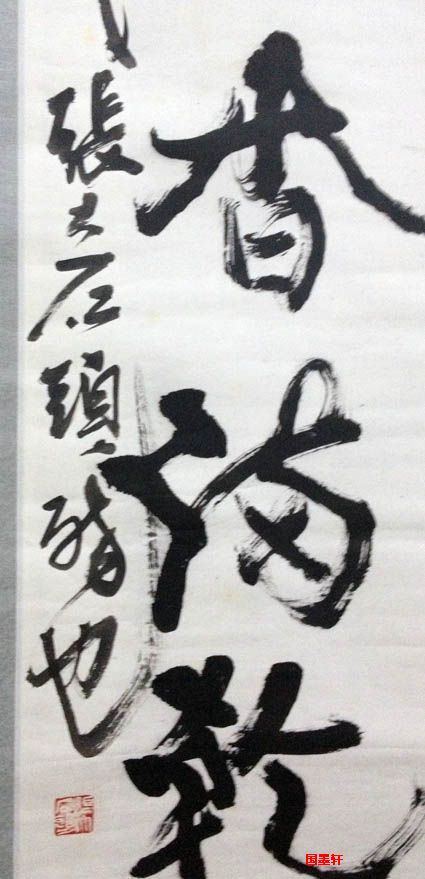 香滿乾
張大石頭
也
国墨轩